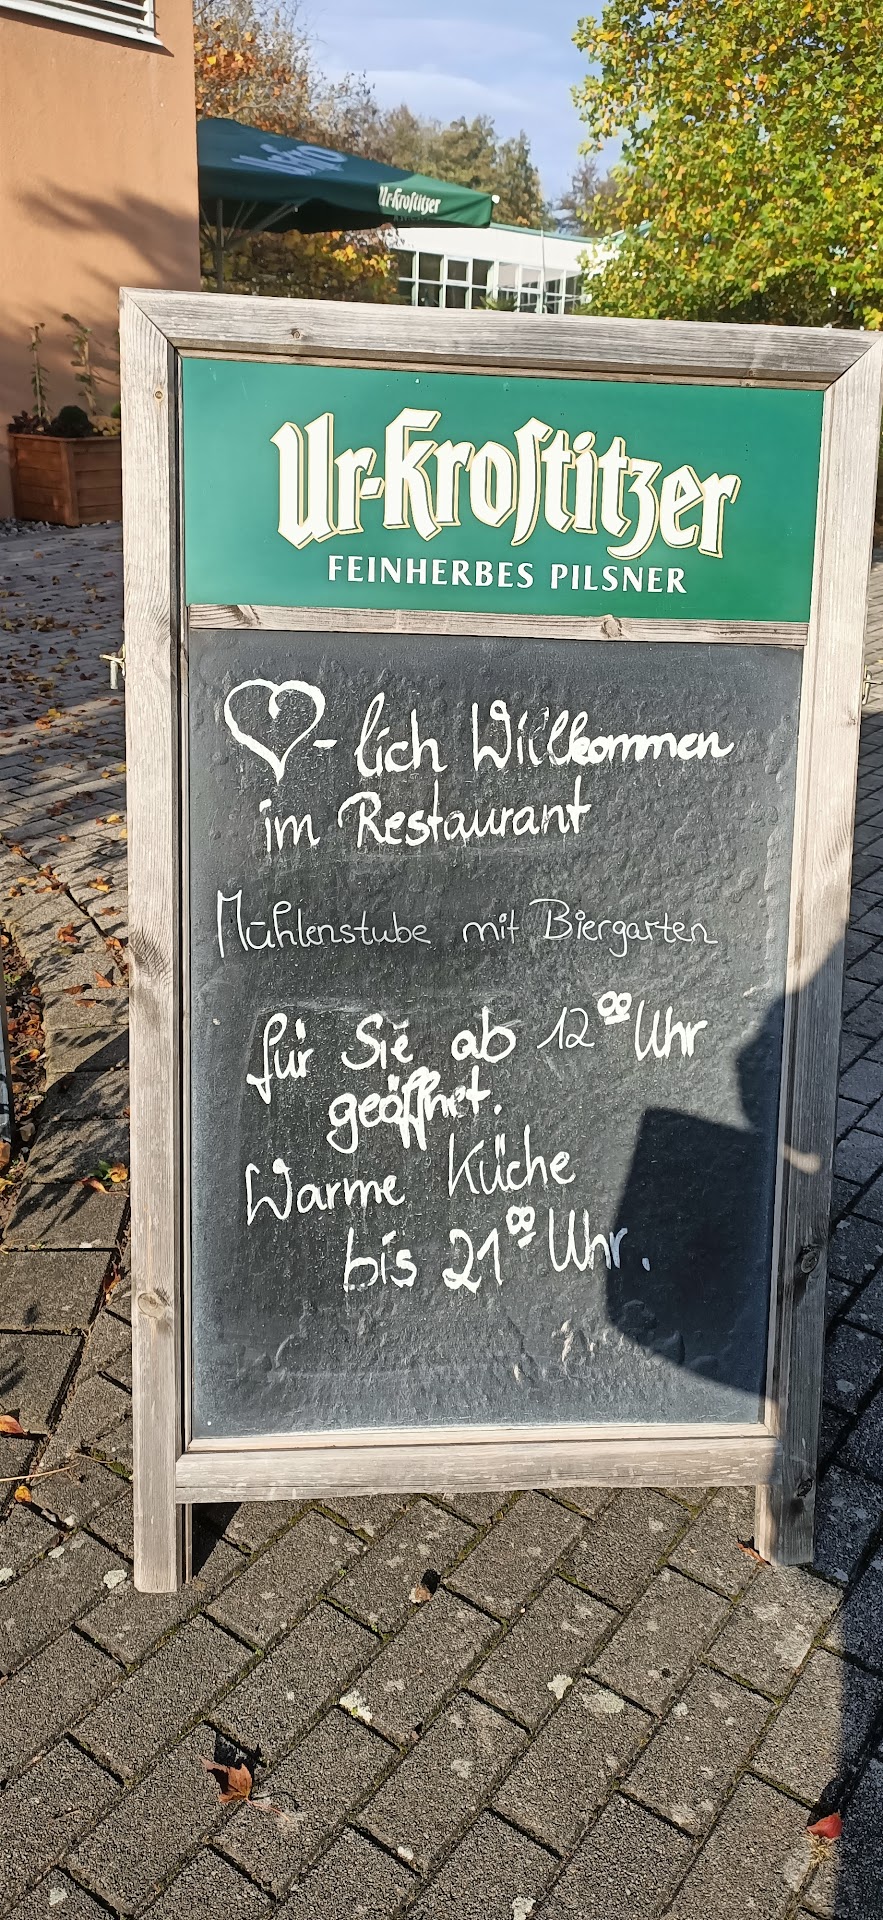 Ur-Krostitzer
Ur-Krostitzer
FEINHERBES PILSNER
♡-lich Willkommen
im Restaurant
Mühlenstube mit Biergarten
für Sie ab 12⁰⁰ Uhr
geöffnet.
Warme Küche
bis 21⁰⁰ Uhr.